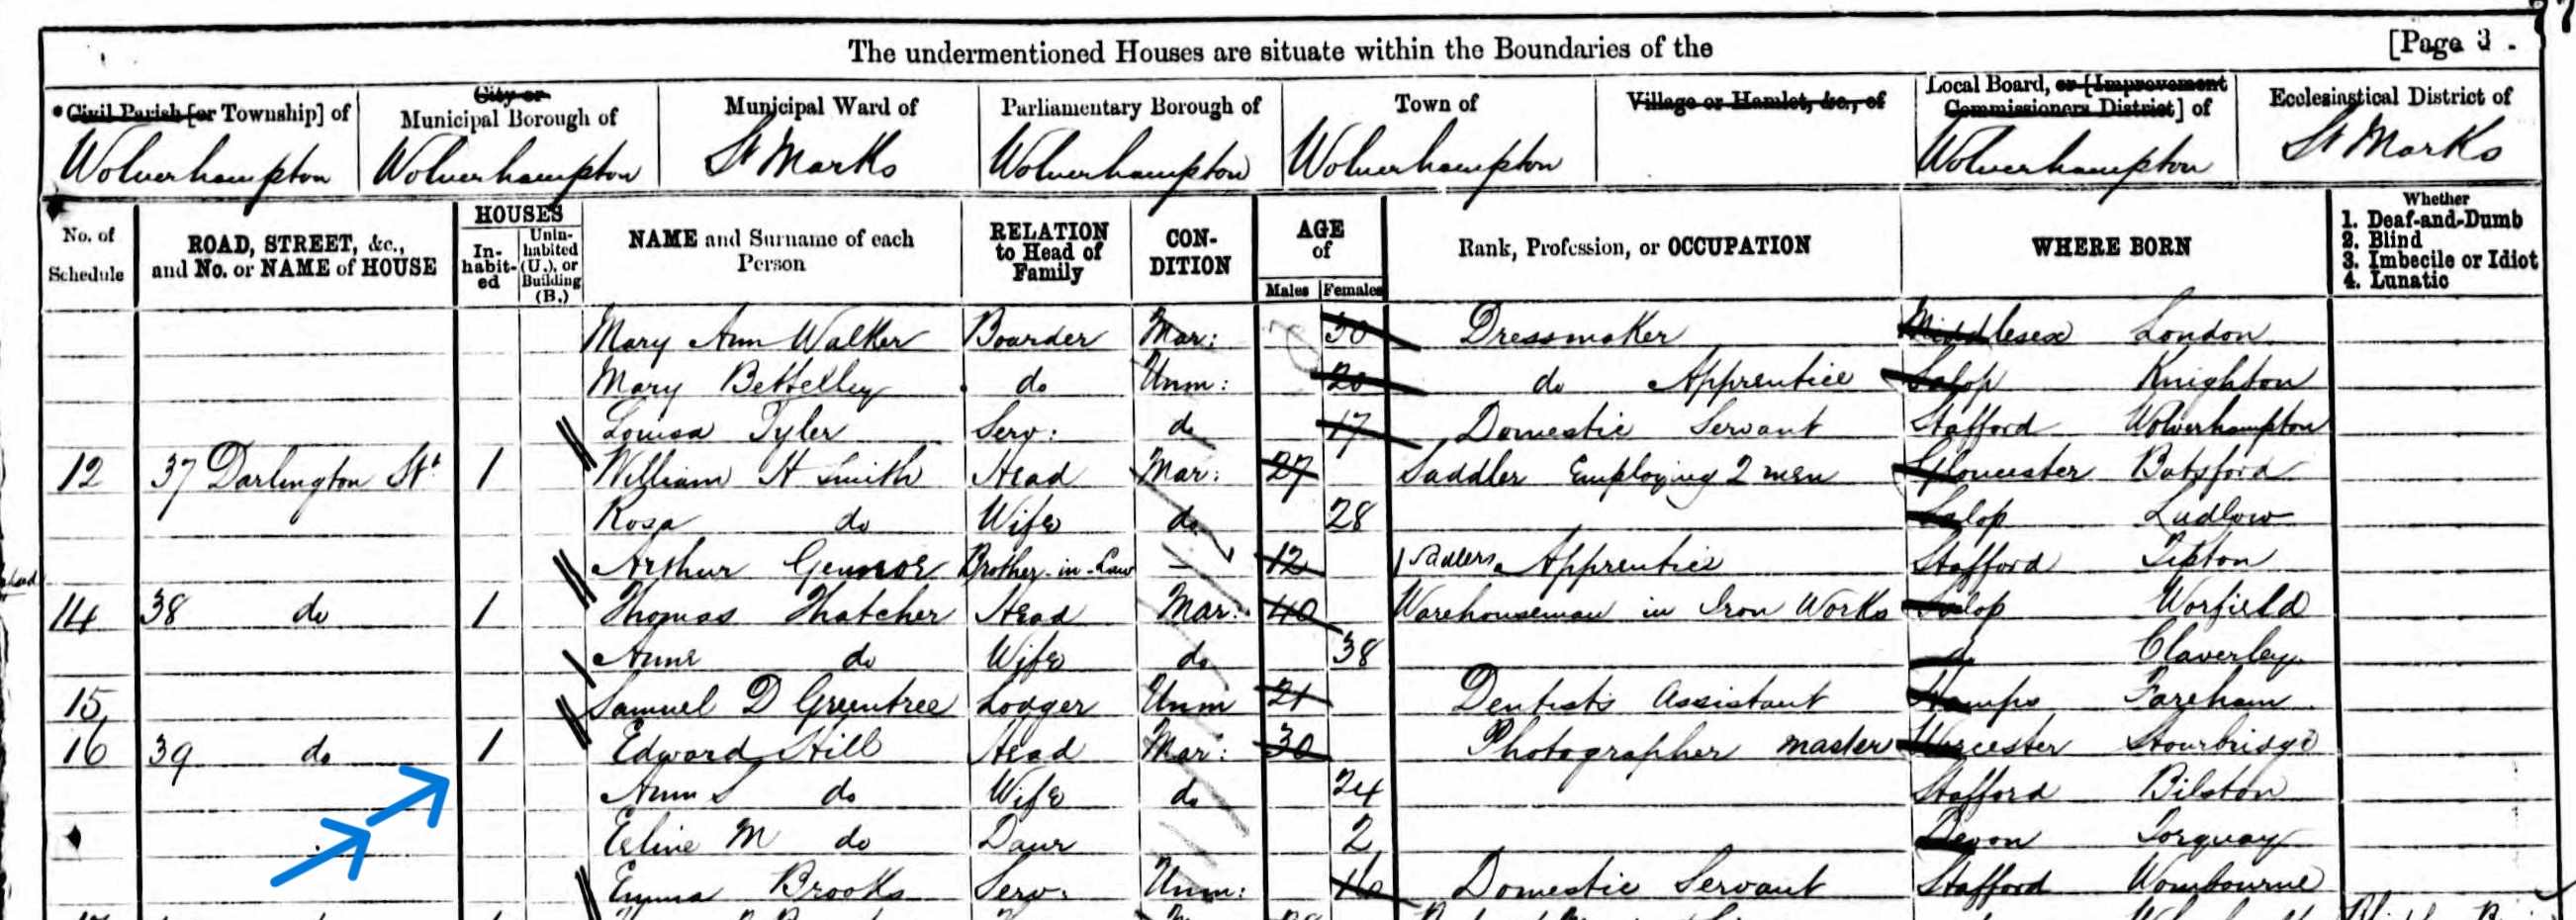 The undermentioned Houses are situate within the Boundaries of the [Page 3.
Civil Parish [or Township] of City or Municipal Borough of Municipal Ward of Parliamentary Borough of Town of Village or Hamlet, &c., of Local Board, or [Improvement Commissioners District] of Ecclesiastical District of
Wolverhampton Wolverhampton St Marks Wolverhampton Wolverhampton Wolverhampton St Marks
No. of Schedule ROAD, STREET, &c., and No. or NAME of HOUSE HOUSES In-habit-ed Unin-habited (U.), or Building (B.) NAME and Surname of each Person RELATION to Head of Family CON-DITION AGE of Males Females Rank, Profession, or OCCUPATION WHERE BORN Whether 1. Deaf-and-Dumb 2. Blind 3. Imbecile or Idiot 4. Lunatic
Mary Ann Walker Boarder Mar: 30 Dressmaker Middlesex London
Mary Bettelley do Unm: 20 do Apprentice Salop Knighton
Louisa Tyler Serv: do 17 Domestic Servant Stafford Wolverhampton
12 37 Darlington St 1 William H Smith Head Mar: 27 Saddler Employing 2 men Gloucester Batsford
Rosa do Wife do 28 Salop Ludlow
Arthur Brother-in-Law 12 Sadlers Apprentice Stafford Tipton
14 38 do 1 Thomas Thatcher Head Mar: 40 Warehouseman in Iron Works Salop Worfield
Anne do Wife do 38 do Claverley
15 Samuel D Greentree Lodger Unm 21 Dentists Assistant Hamps Fareham
16 39 do 1 Edward Hill Head Mar: 30 Photographer master Worcester Stourbridge
Ann S do Wife do 24 Stafford Bilston
M do Daur 2 Devon Torquay
Emma Brooks Serv: Unm: 16 Domestic Servant Stafford Wombourne